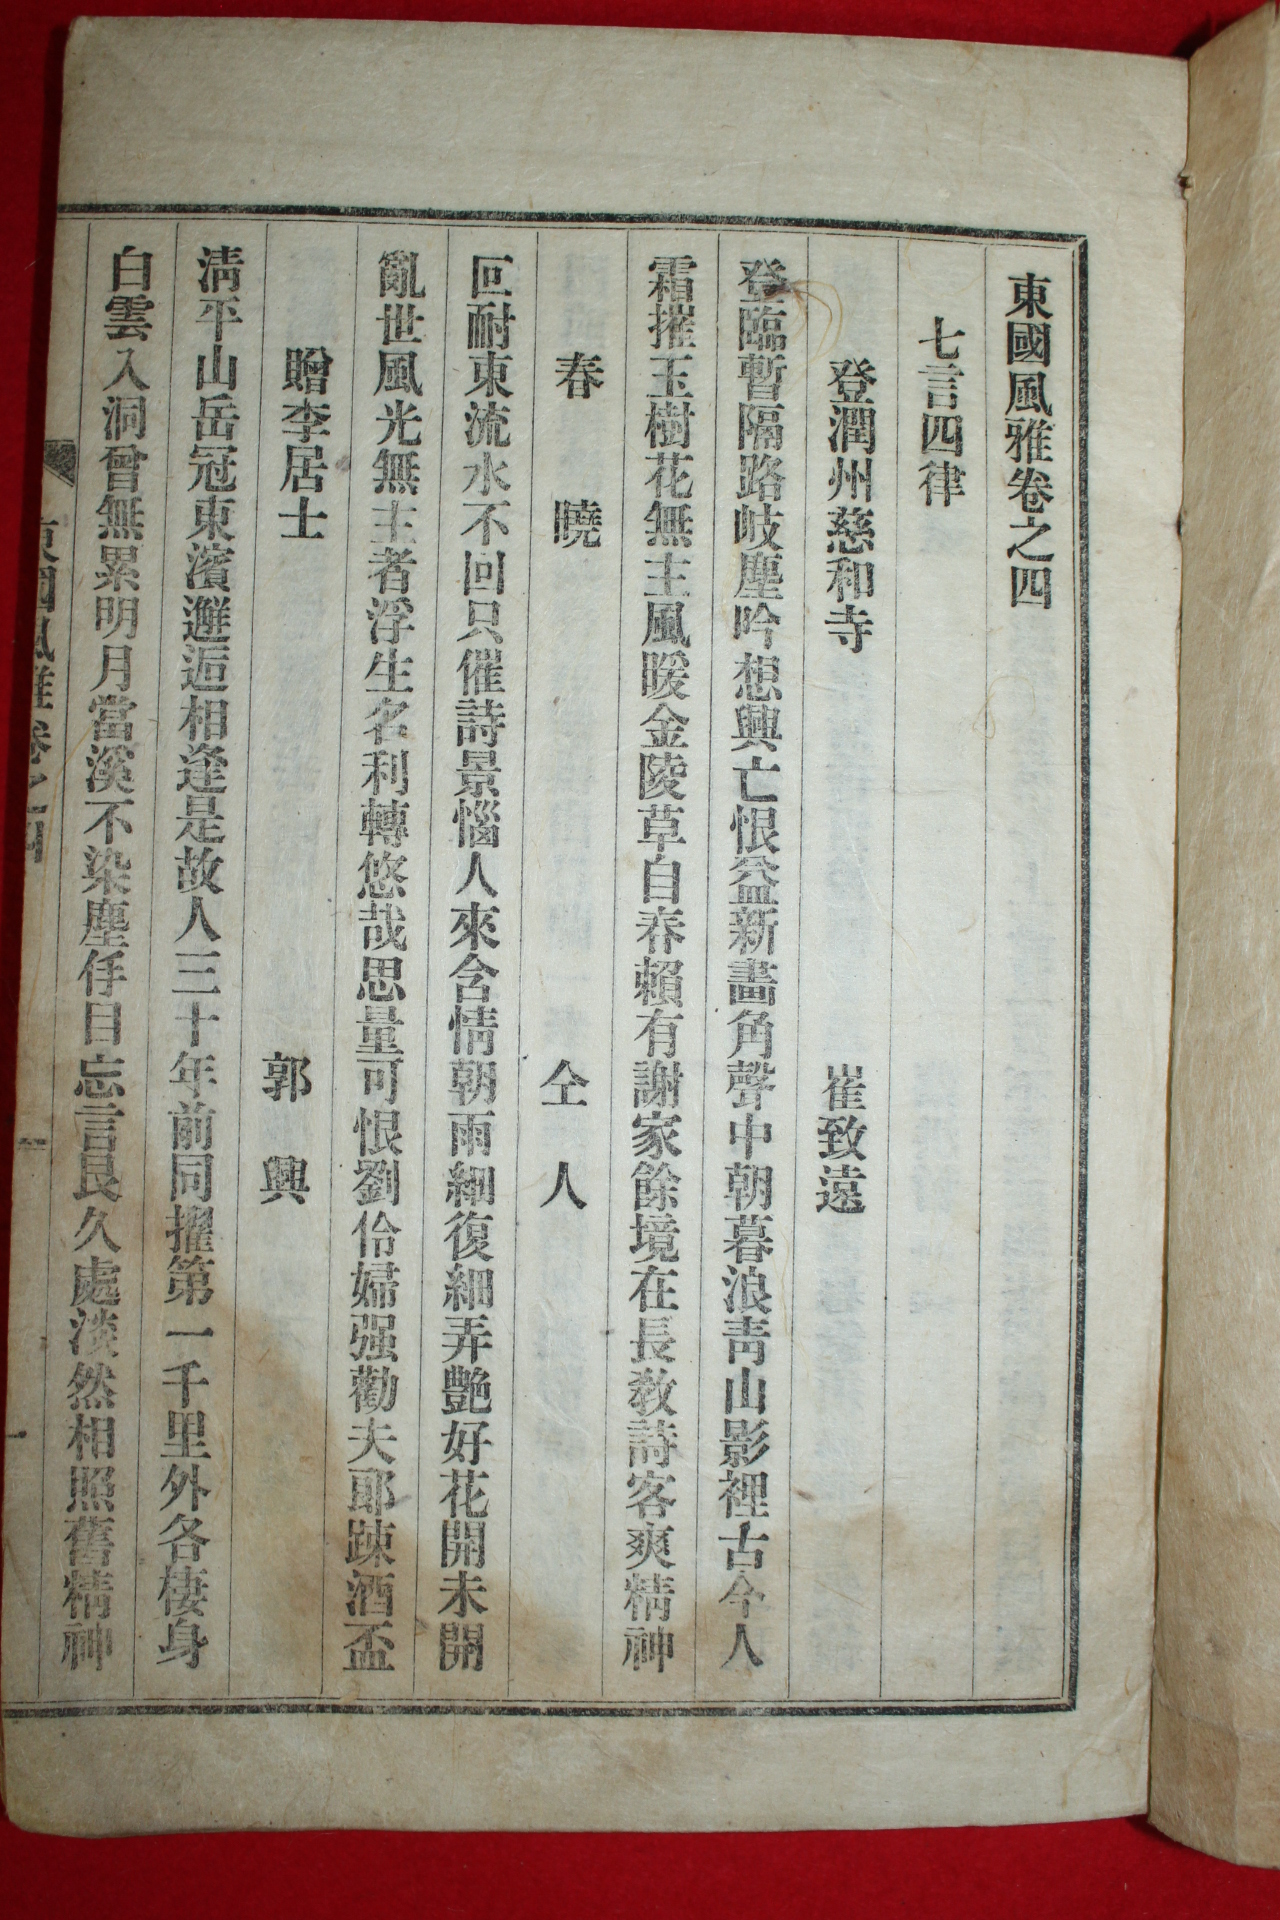 東國風雅卷之四
七言四律
登潤州慈和寺 崔致遠
登臨暫隔路岐塵吟想興亡恨益新畵角聲中朝暮浪靑山影裡古今人
霜摧玉樹花無主風暖金陵草自春賴有謝家餘境在長敎詩客爽精神
春曉 仝人
叵耐東流水不回只催詩景惱人來含情朝雨細復細弄艶好花開未開
亂世風光無主者浮生名利轉悠哉思量可恨劉伶婦强勸夫郞踈酒盃
贈李居士 郭興
淸平山岳冠東濱邂逅相逢是故人三十年前同擢第一千里外各棲身
白雲入洞曾無累明月當溪不染塵仟目忘言良久處淡然相照舊精神
東國風雅卷之四
一